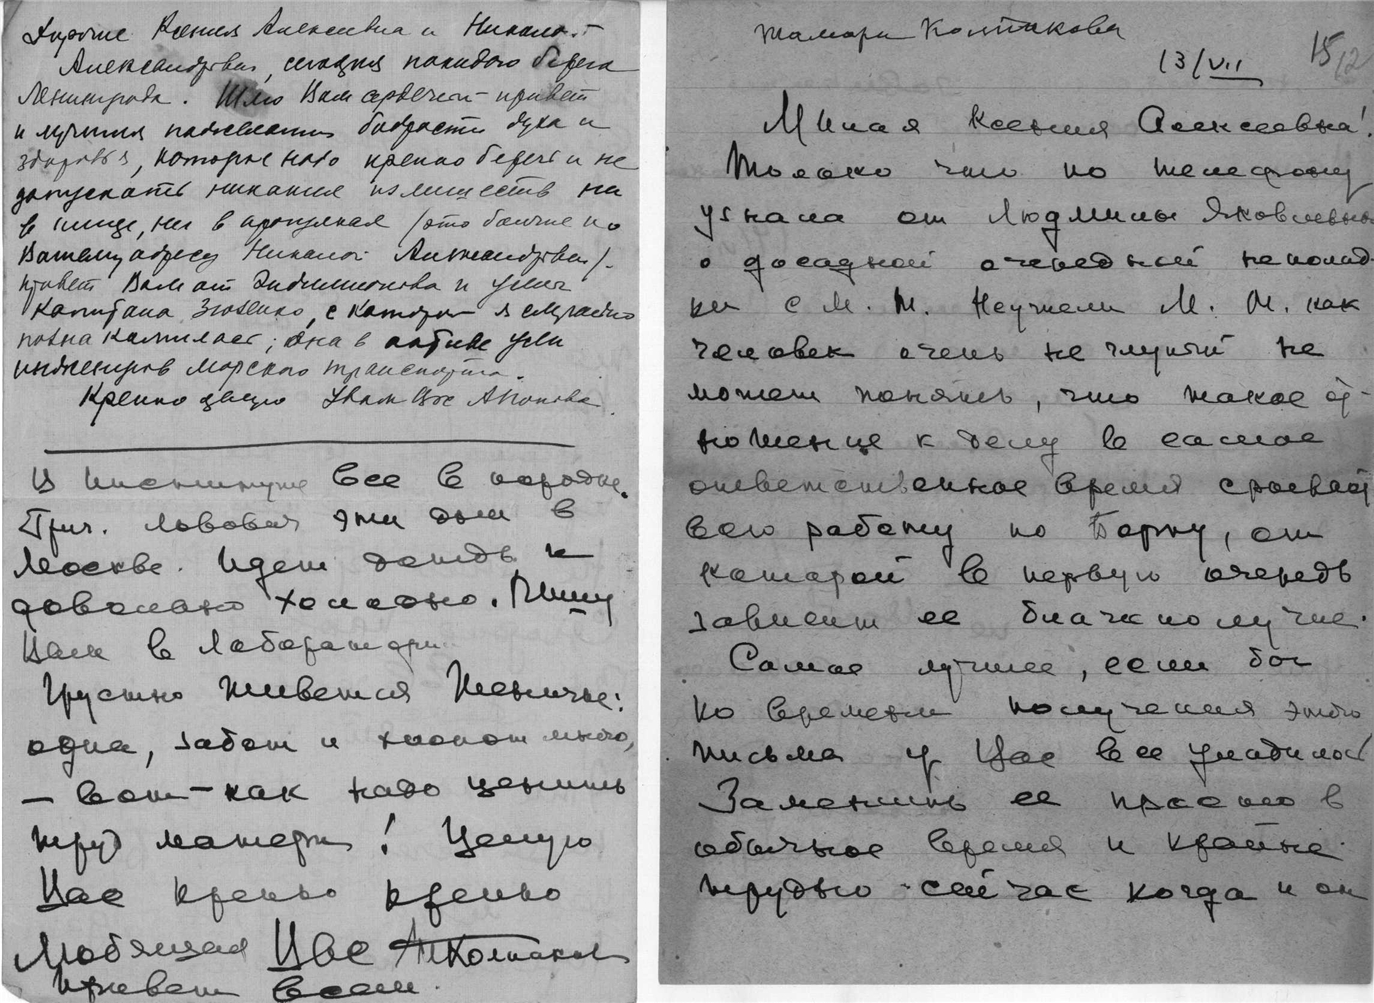 Дорогие Ксения Алексеевна и Николай
Александрович, сегодня покидаю берега
Ленинграда. Шлю Вам сердечный привет
и лучшие пожелания бодрости духа и
здоровья, которые надо крепко беречь и не
допускать никаких излишеств ни
в пище, ни в прогулках (это больше по
Вашему адресу Николай Александрович).
Привет Вам от и
капитана с которой я случайно
познакомилась; она в
инженеров морского транспорта.
Крепко целую Вас
В институте все в порядке.
Григ. Львович эти дни в
Москве. Идет дождь и
довольно холодно. Пишу
Вам в Лаборатории
Грустно живется Женичке:
одна, забот и хлопот много,
– вот – как надо ценить
труд матери! Целую
Вас крепко крепко
Любящая Вас
Привет всем.
Тамара Колпакова
13/VII
15/2
Милая Ксения Алексеевна!
Только что по телефону
узнала от Людмилы Яковлевны
о досадной очередной неполад-
ки с М. М. Неужели М. М. как
человек очень не глупый не
может понять, что такое от-
ношение к делу в самое
ответственное время срывает
всю работу по Борку, от
которой в первую очередь
зависит ее благополучие.
Самое лучшее, если бы
ко времени получения этого
письма у Вас все уладилось
Заменить ее просто в
обычное время и крайне
трудно сейчас когда и он